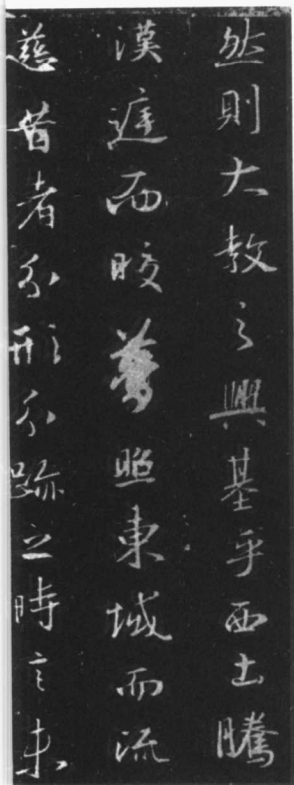 然則大教之興基乎西土騰
漢庭而皎夢照東域而流
慈昔者分形分跡之時言未